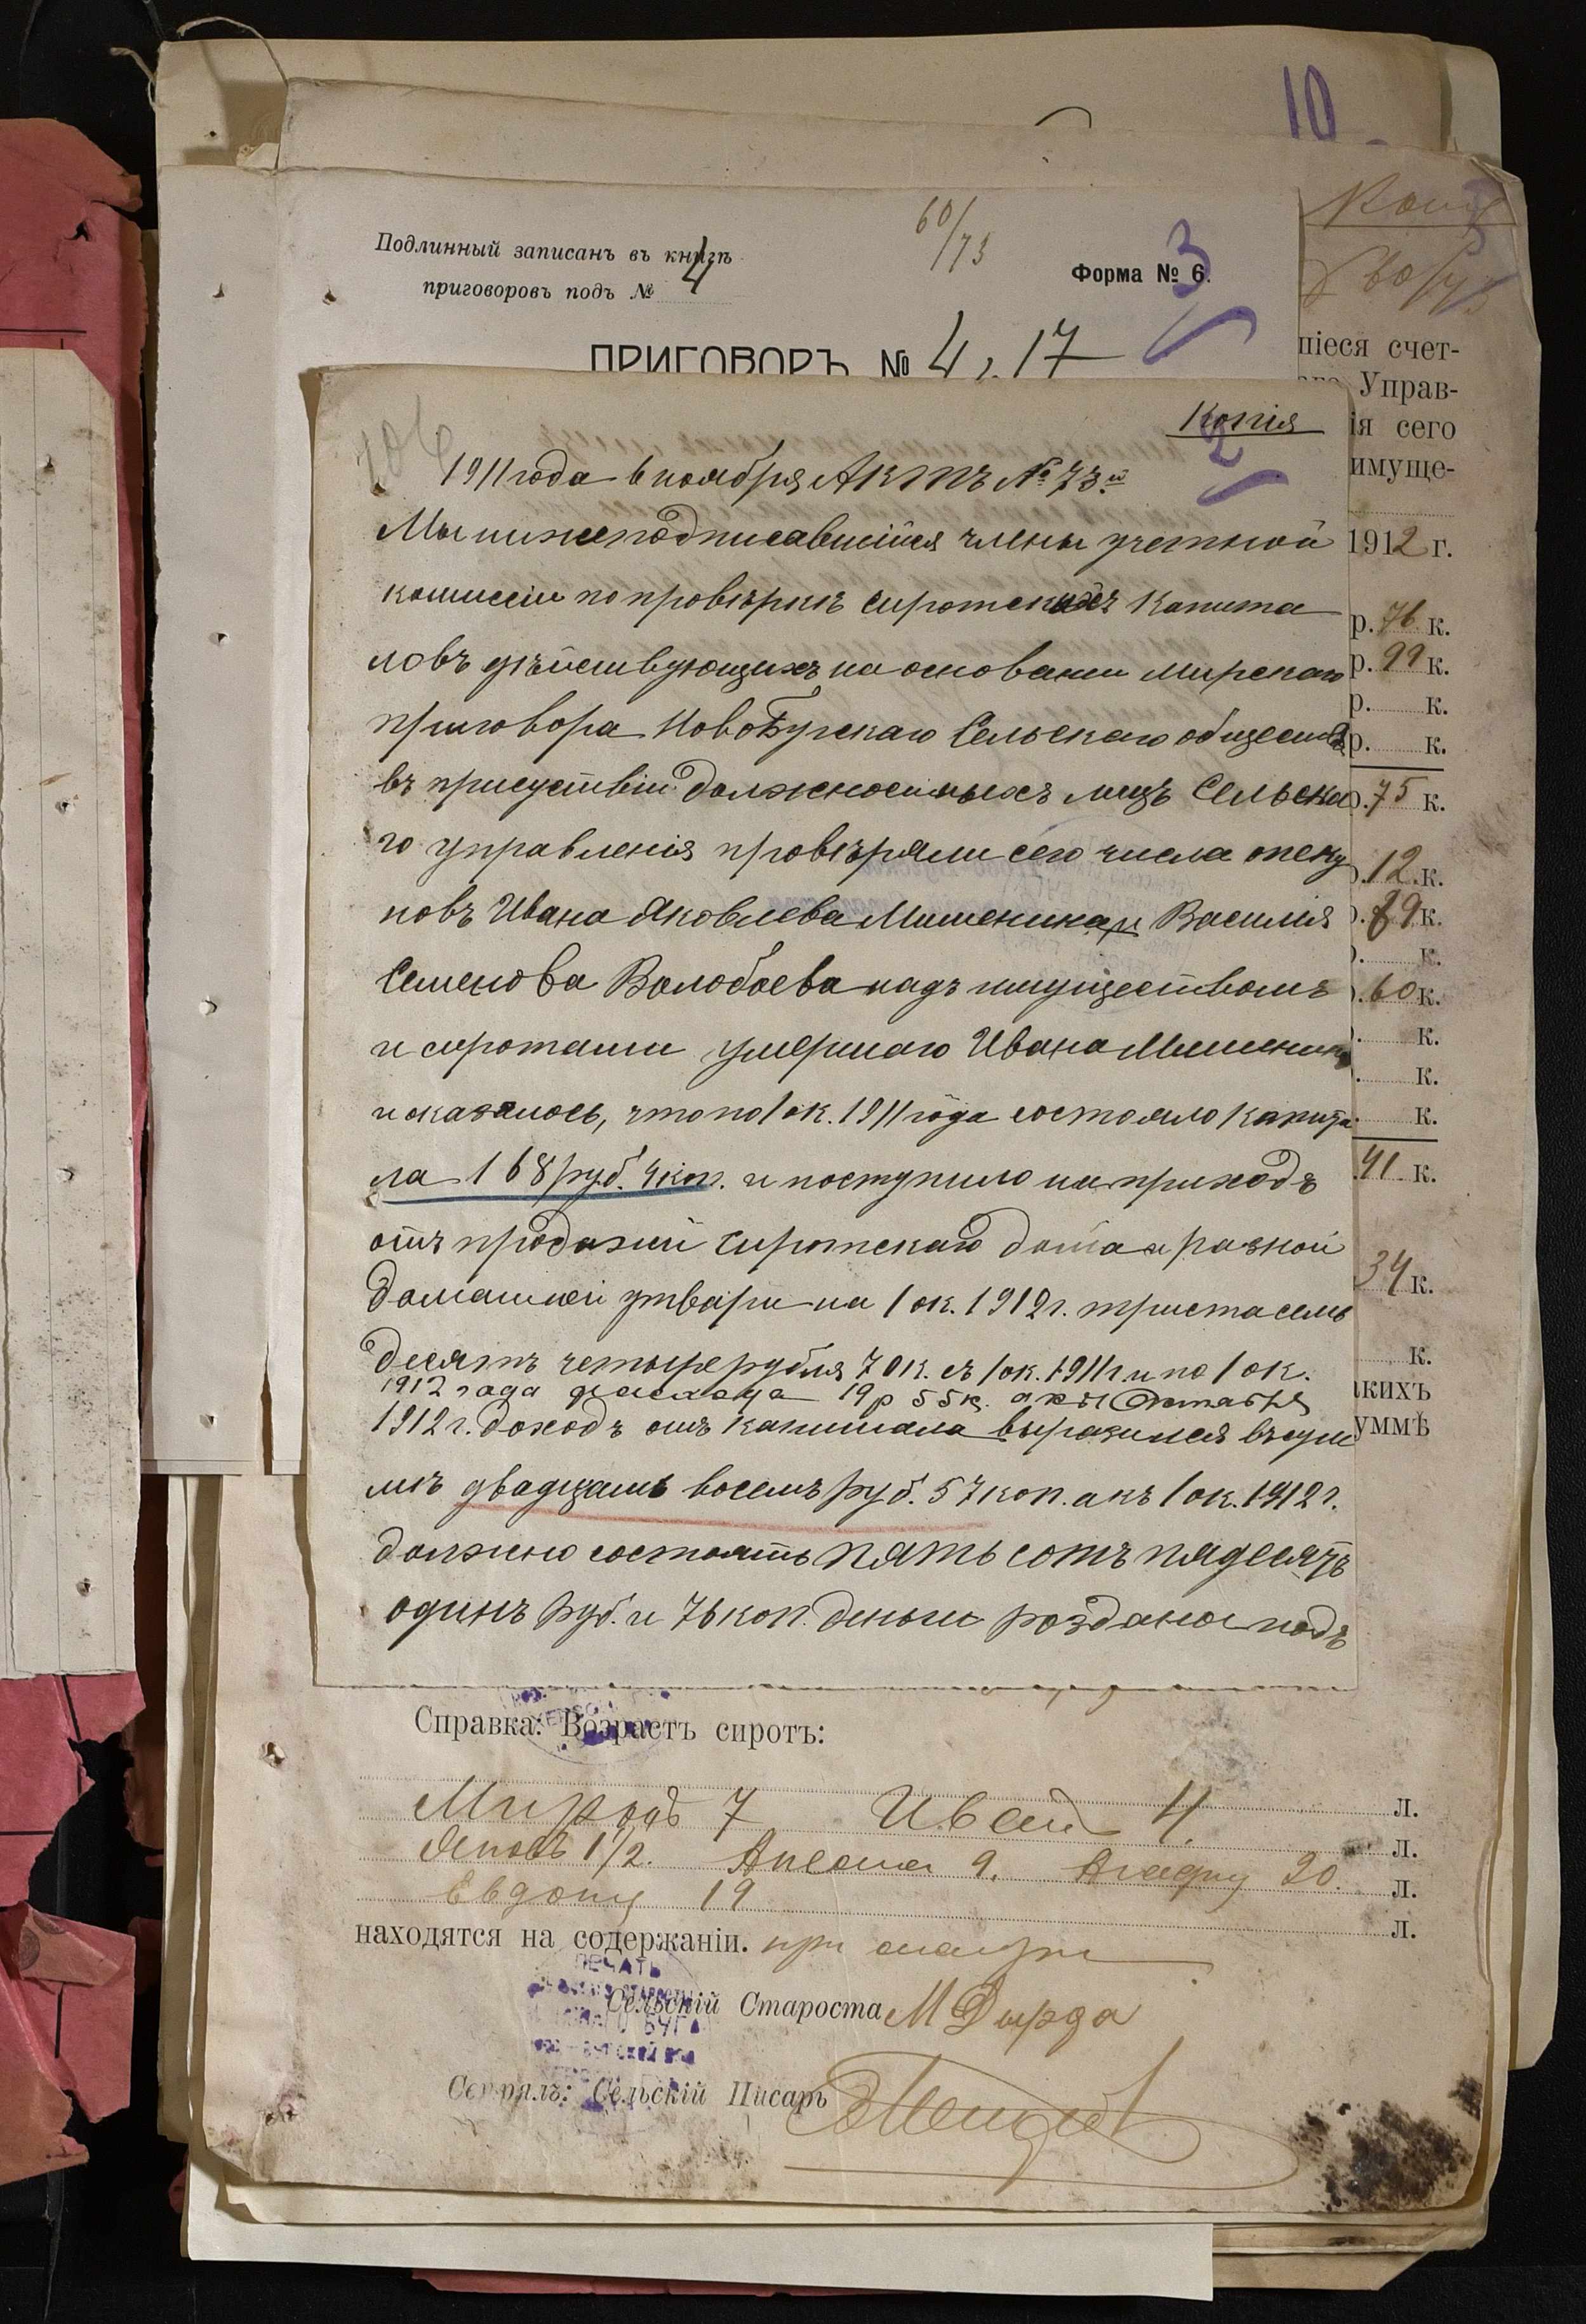 10
Подлинный записанъ въ книгѣ
приговоровъ подъ № 4
60/73
Форма № 6.
3
ПРИГОВОРЪ № 4 17
Копія
60/73
піеся счет-
Управ-
ія сего
имуще-
1912 г.
р. 76 к.
р. 99 к.
р. к.
р. к.
75 к.
12 к.
89 к.
к.
60 к.
к.
к.
к.
41 к.
34 к.
к.
кихъ
уммѣ
Копія
2
1911 года 6 ноября АКТЪ № 73й
Мы нижеподписавшійся члены учетной
комиссіи по провѣркѣ сиротскихъ капита
ловъ дѣйствующихъ на основании мирскаго
приговора НовоБугскаго Сельскаго общества
въ присутствіи должностныхъ лицъ Сельска
го управленія провѣряли сего числа опеку
новъ Ивана Яковлева Мишенина и Василія
Семенова Волобоева надъ имуществомъ
и сиротами умершаго Ивана Мишенина
и оказалось, что по 1 ок. 1911 года состояло капита
ла 168 руб. 4 коп. и поступило на приходъ
отъ продажи сиротскаго дома и разной
домашней утвари на 1 ок. 1912 г. триста семь
десятъ четыре рубля 70 к. съ 1 ок. 1911 г и по 1 ок.
1912 года расхода 19 р 55 к. а къ 1 Октября
1912 г. доходъ отъ капитала выразился въ сум
мѣ двадцать восемь руб. 57 коп. а къ 1 ок. 1912 г.
должно состоять пять сотъ пядесятъ
одинъ руб. и 76 коп. деньги розданы подъ
Справка: Возрастъ сиротъ:
7 Иван 4. л.
Яковъ 1 1/2. 9. 20. л.
Евдокия 19 л.
л.
находятся на содержаніи. при матери
ПЕЧАТЬ
БУГА
Сельскій Староста М Дырда
Скрѣпялъ: Сельскій Писарь